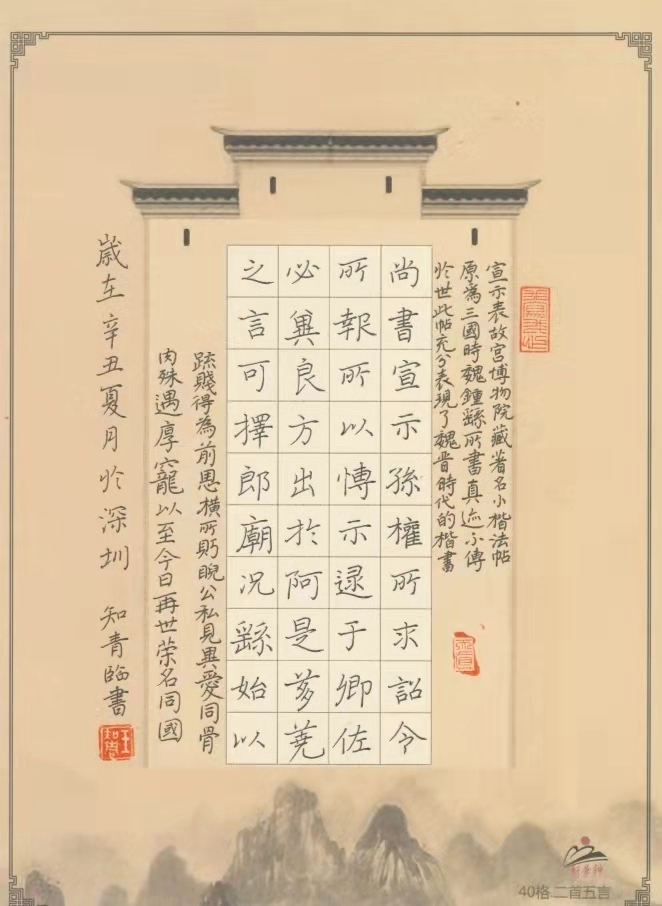 宣示表故宫博物院藏著名小楷法帖
原為三國時魏鍾繇所書真迹小傳
於世此帖充分表現了魏晋時代的楷書
尚書宣示孫權所求詔令
所報所以慱示逯于卿佐
必兾良方出於阿是芻蕘
之言可擇郎廟況繇始以
疏賤得為前恩橫所䀣睨公私見異愛同骨
肉殊遇厚寵以至今日再世荣名同國
歲在辛丑夏月於深圳 知青臨書
40格.二首五言